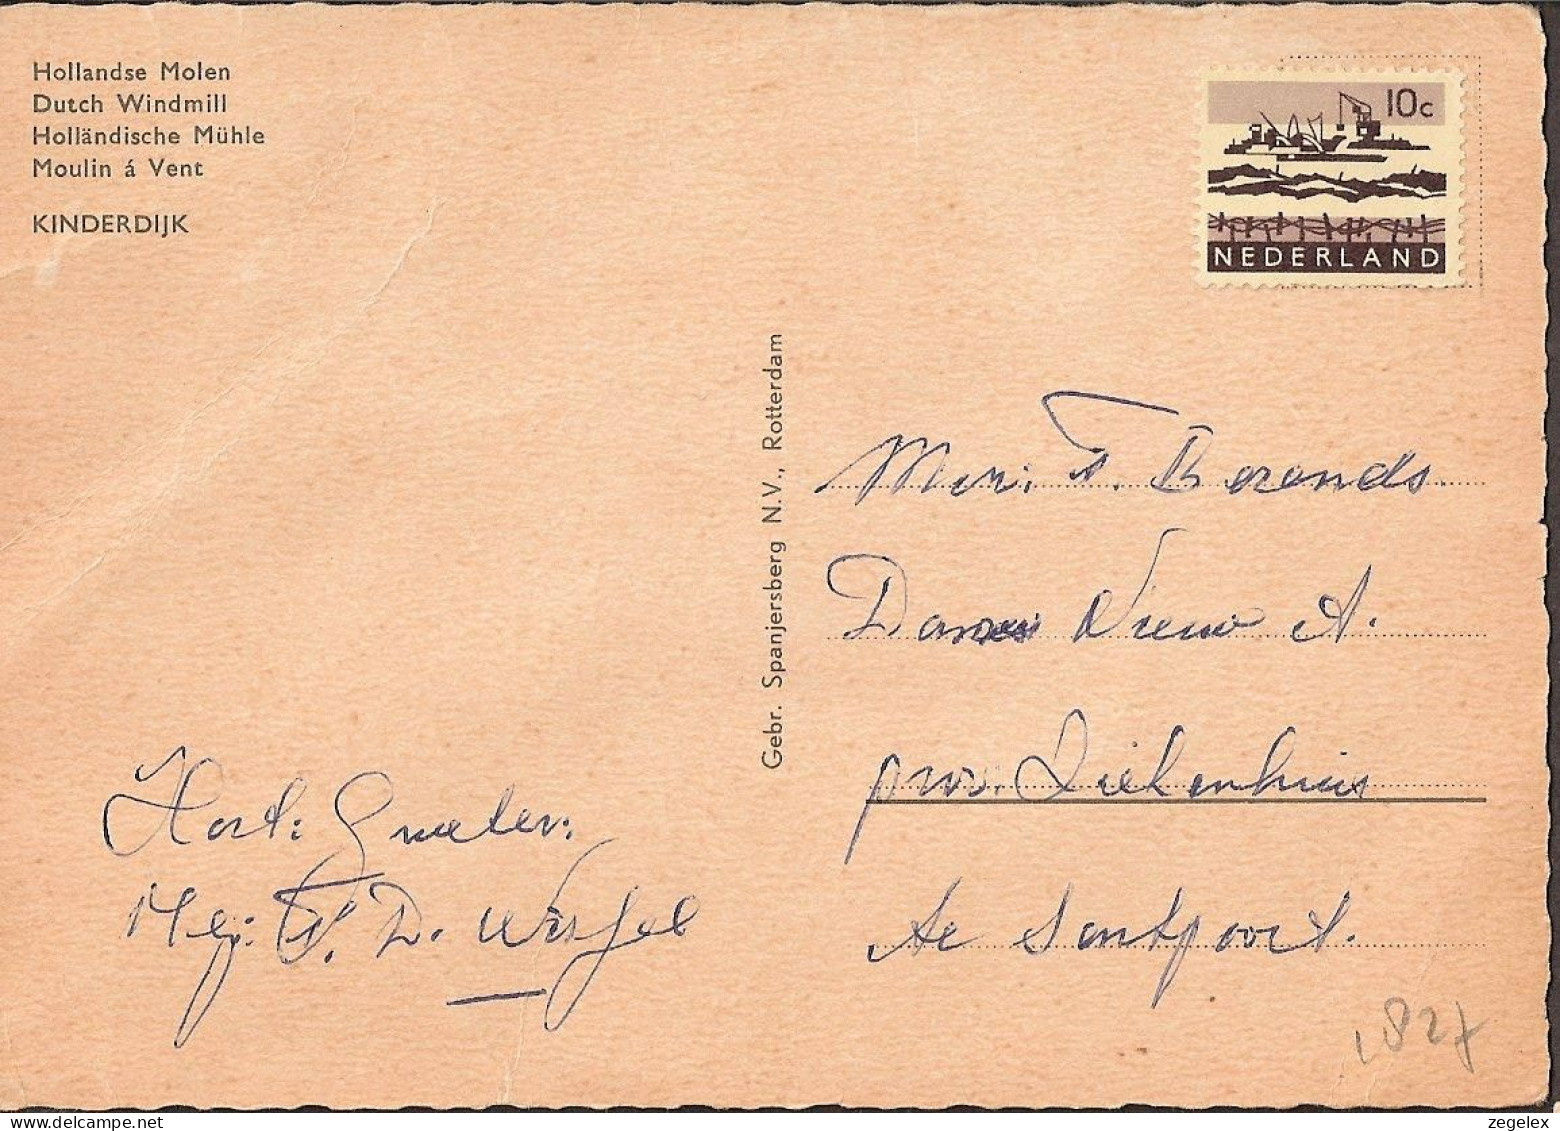 Hollandse Molen
Dutch Windmill
Holländische Mühle
Moulin á Vent
KINDERDIJK
10c
NEDERLAND
Gebr. Spanjersberg N.V., Rotterdam
T. Berends.
Nieuw A.
prov. Ziekenhuis
te Santpoort.
Hart: Groeten:
Mej: T. D.
1827
zegelex
delcampe.net